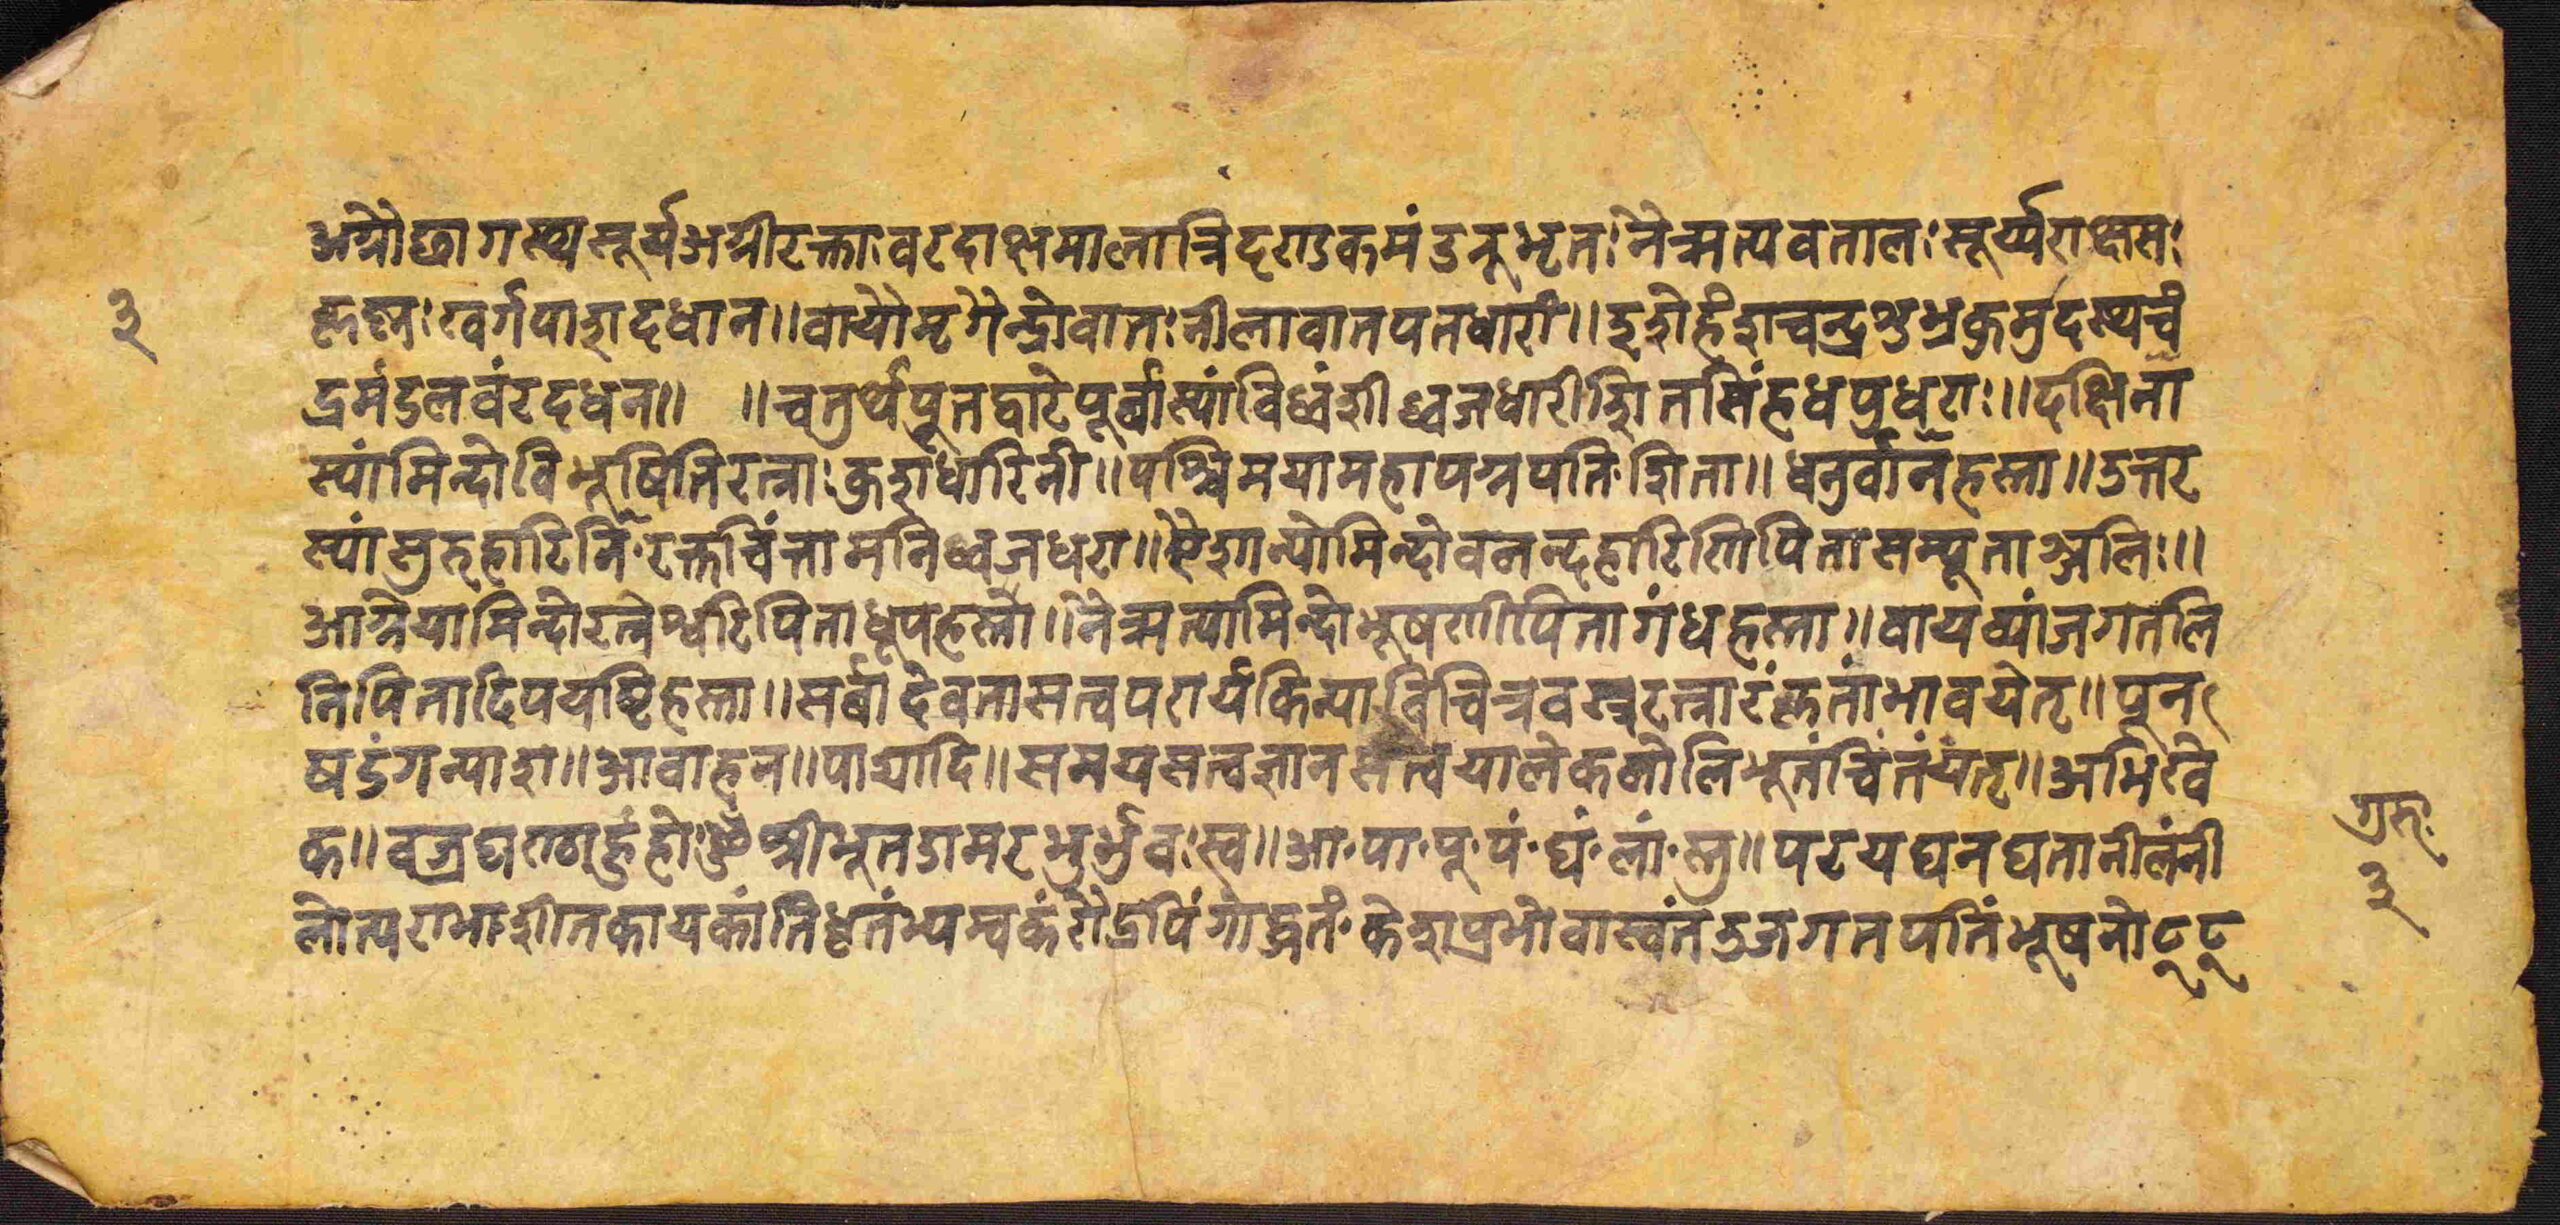 अग्नौ छागस्थ सूर्य अग्नी रक्तः वरदाक्षमाला त्रिदण्डकमंडलूभृतः नैऋत्य वतालः सूर्य्य राक्षसः
३
कृष्णः खर्गपाशदधान ॥ वायौ मृगेन्द्रो वातः नीलावातपतधारी ॥ इशेहंशचन्द्र शुभ्रकुमुदस्थचं
द्रमंडलवंरदधन ॥ ॥ चतुर्थपूतद्वारे पूर्व्वास्यां विध्वंशी ध्वजधारी शित सिंहधपुधराः ॥ दक्षिना
स्यांमिन्दो विभूषिनि रत्नाः कुशधारिनी ॥ पश्चिमयामहापग्नपति शिता ॥ धनुर्वानहस्ता ॥ उत्तर
स्यां सुरुहारिनि रक्तचिंतामनिध्वजधरा ॥ ऐशान्योमिन्दो वनन्दहारिणीपितासम्पूताञ्जलिः ॥
आग्नेयामिन्दो रत्नेश्वरिपिताधूपहस्तो ॥ नैऋत्यामिन्दो भूषणीपितागंधहस्ता ॥ वायव्यां जगतलि
निपितादिपयष्टिहस्ता ॥ सर्बा देवतासत्वपरार्यकिन्या विचित्रवस्त्ररत्नारंकृतां भावयेत् ॥ पुन
षडंगन्याश ॥ आवाहन ॥ पाद्यादि ॥ समयसत्वज्ञानसत्वयालेकलोलिभूतं चिंतंयतृ ॥ अभिखे
क ॥ वज्रघण्ठा हुं होः श्रीभूतडामर भुर्भुवः स्व ॥ आ॰ पा॰ पु॰ पं॰ घं॰ लां॰ स्तु ॥ परयघनघतानीलंनी
गुरुः
३
लोत्परामा शीतकायकांति धृतं भ्यम्बकं रौद्रपिंगोर्द्धतं केशप्रभो वास्वंतउजगतपतिं भूषनो